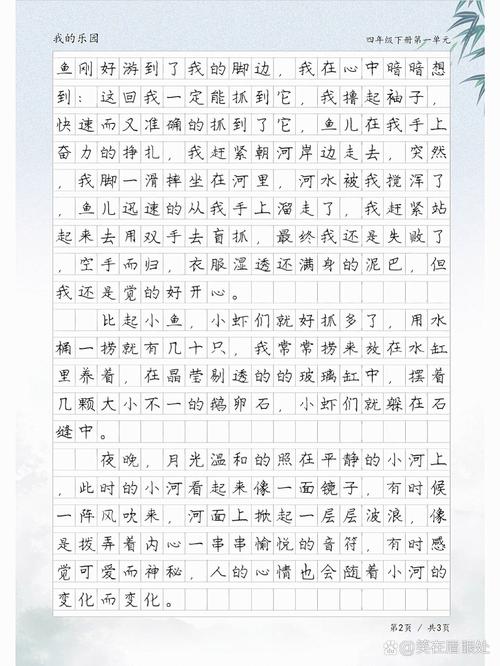 我的乐园
四年级下册第一单元
鱼刚好游到了我的脚边，我在心中暗暗想
到：这回我一定能抓到它，我撸起袖子，
快速而又准确的抓到了它，鱼儿在我手上
奋力的挣扎，我赶紧朝河岸边走去，突然
，我脚一滑摔坐在河里，河水被我搅浑了
，鱼儿迅速的从我手上溜走了，我赶紧站
起来去用双手去盲抓，最终我还是失败了
，空手而归，衣服湿透还满身的泥巴，但
我还是觉的好开心。
比起小鱼，小虾们就好抓多了，用水
桶一捞就有几十只，我常常捞来放在水缸
里养着，在晶莹剔透的的玻璃缸中，摆着
几颗大小不一的鹅卵石，小虾们就躲在石
缝中。
夜晚，月光温和的照在平静的小河上
，此时的小河看起来像一面镜子，有时候
一阵风吹来，河面上掀起一层层波浪，像
是拨弄着内心一串串愉悦的音符，有时感
觉可爱而神秘，人的心情也会随着小河的
变化而变化。
第2页 / 共3页
@笑在眉眼处